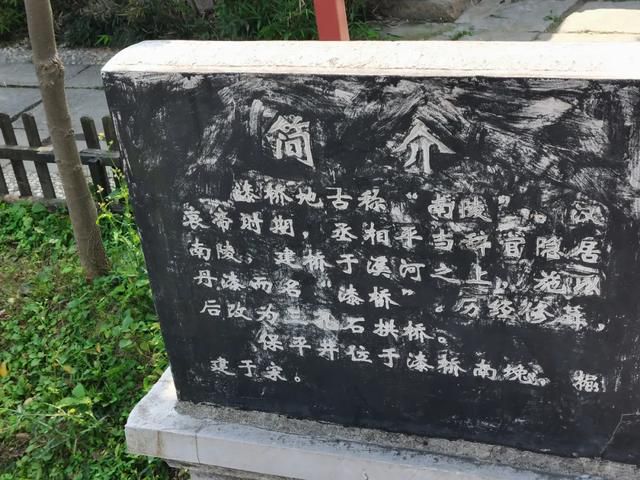 简介
漆桥地古称“南陵”。汉
哀帝时期，丞相平当辞官隐居
南陵，建桥于溪河之上，施以
丹漆而名“漆桥”。历经修葺，
后改为三孔石拱桥。
保平井位于漆桥南堍。据
建于宋。